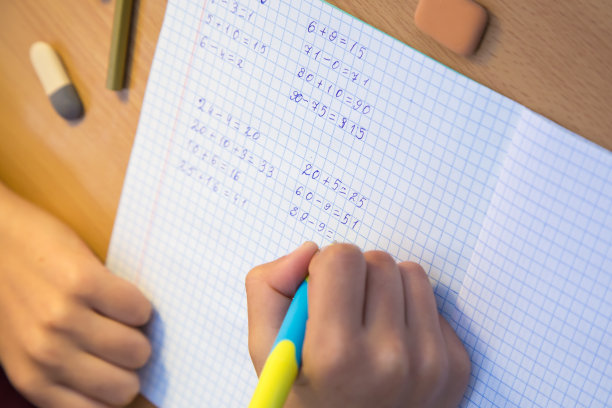 5+10=15
6-4=2
6+9=15
71-0=71
80+10=90
90-75=315
24-4=20
20+10+3=33
10+6=16
25+16=41
20+5=25
60-9=51
39-9=